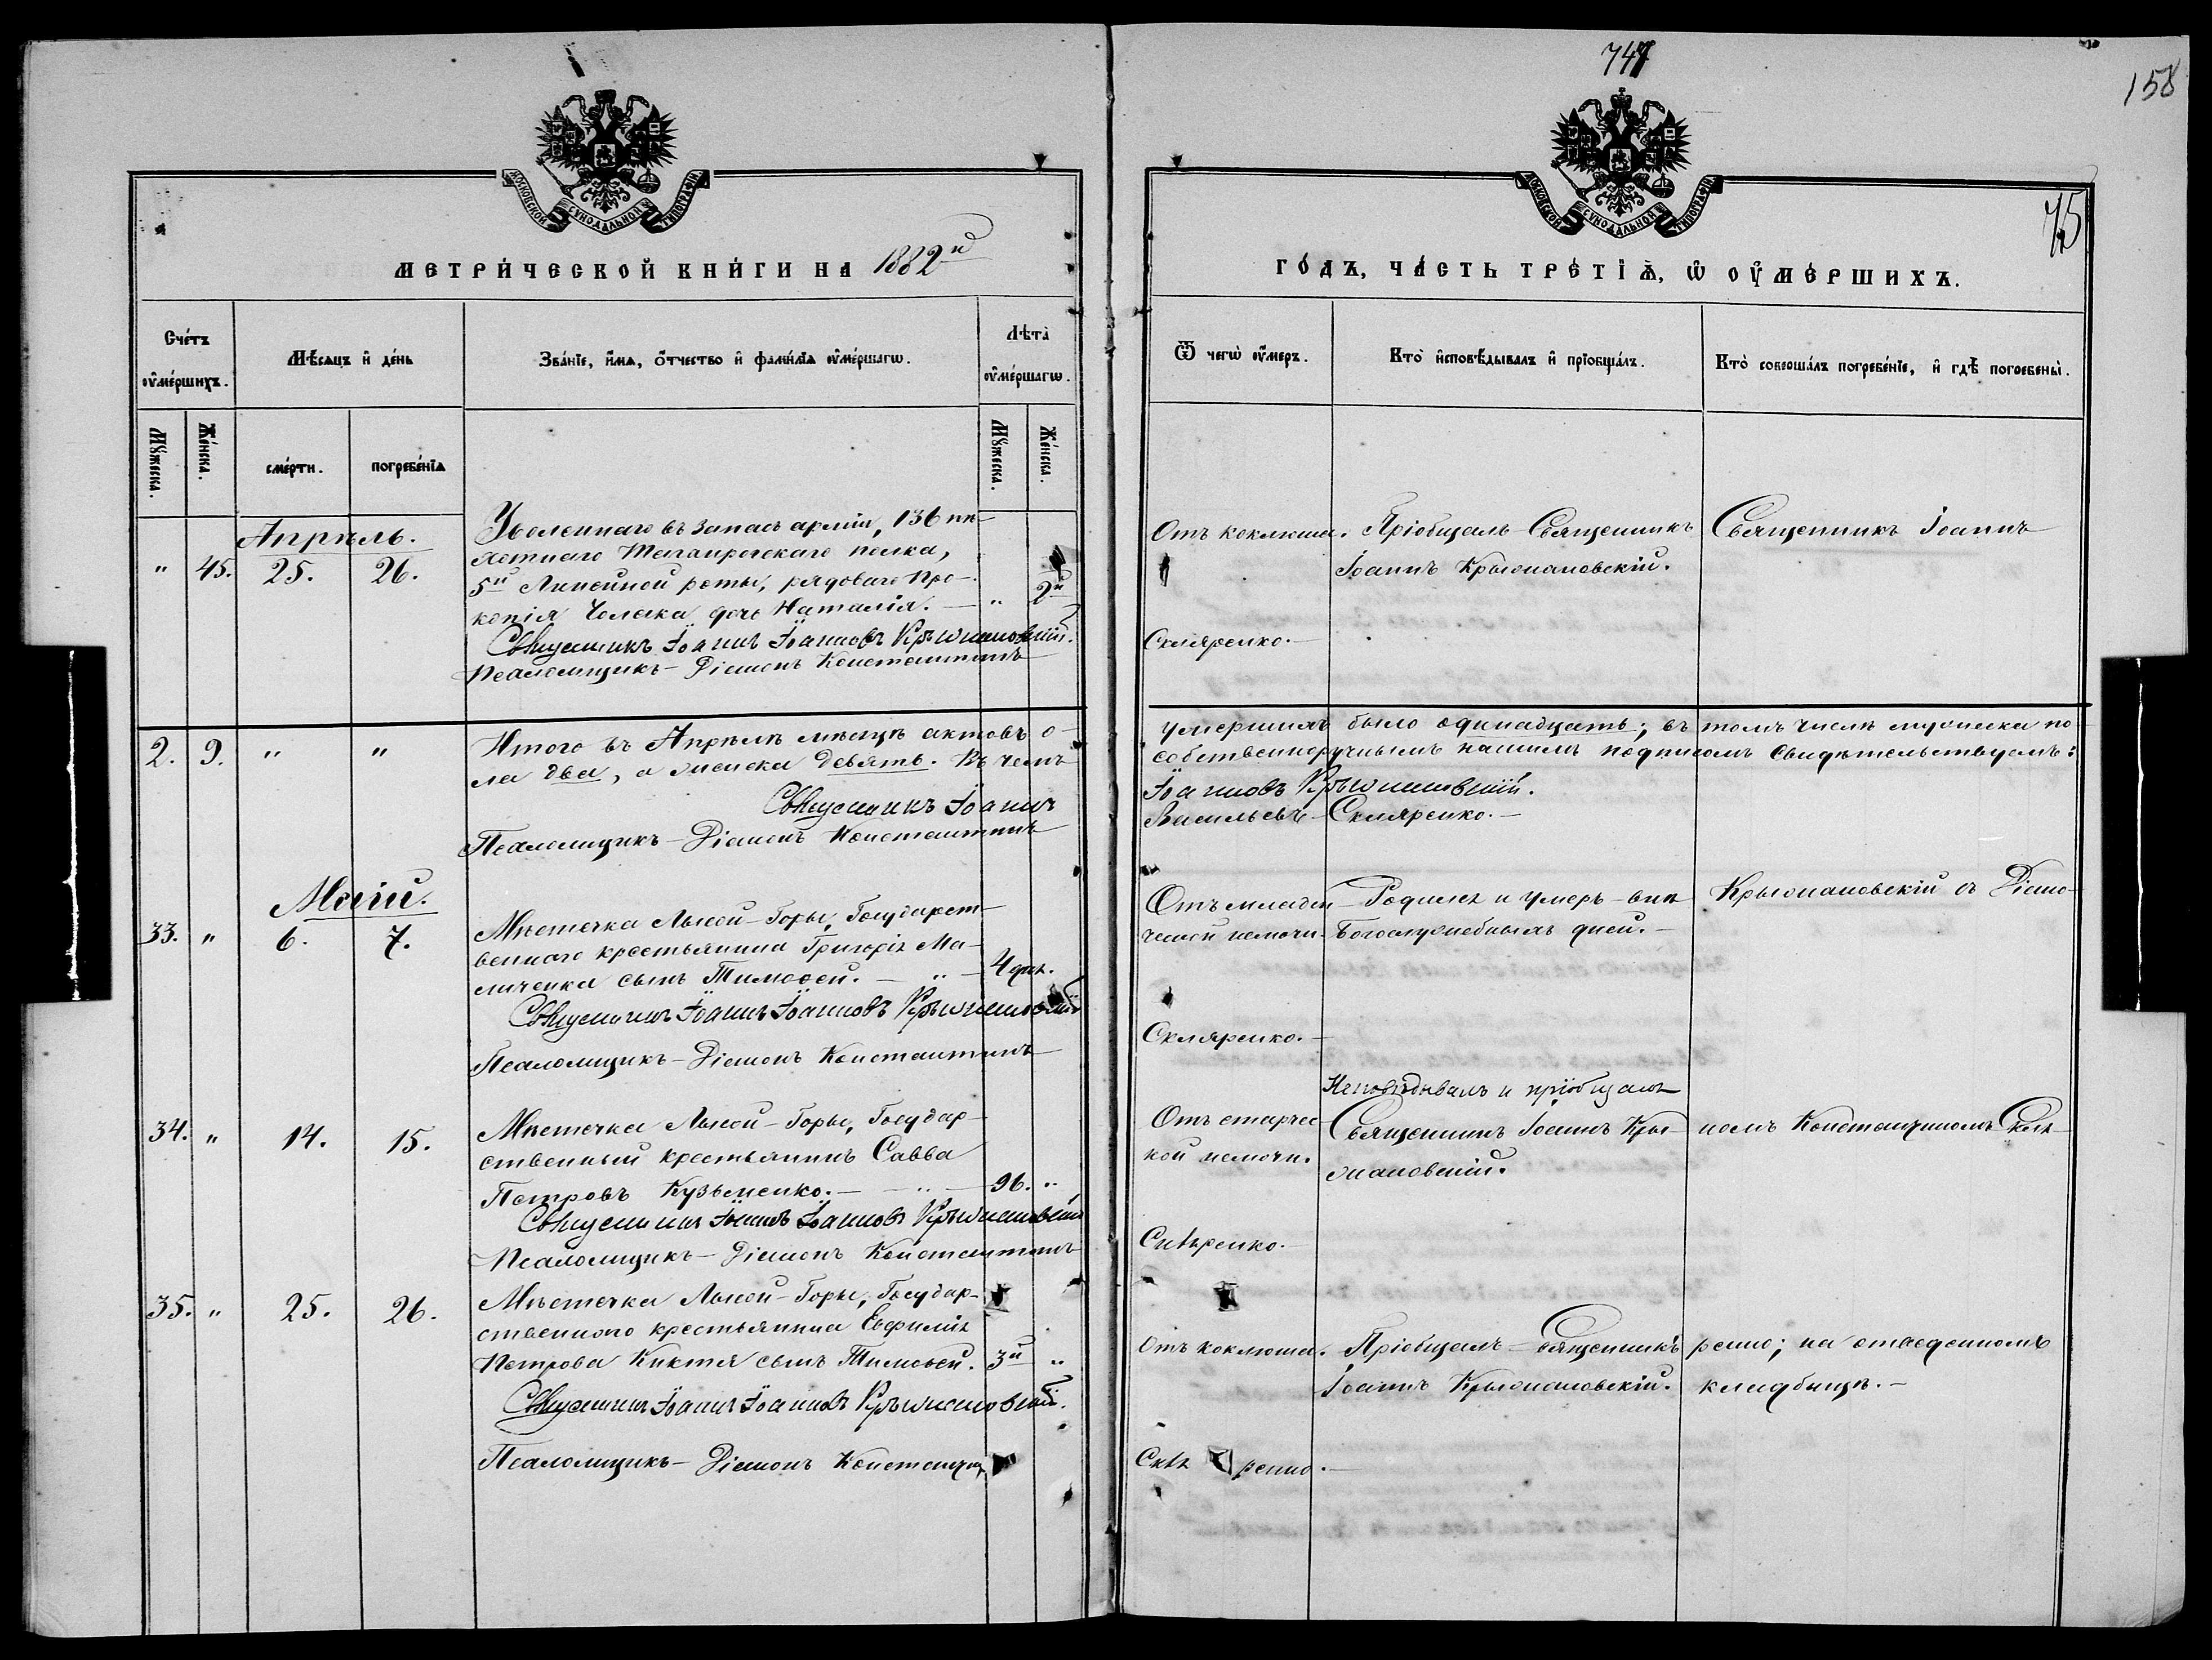 747
158
75
МОСКОВСКОЙ СѴНОДАЛЬНОЙ ТИПОГРАФІИ
МОСКОВСКОЙ СѴНОДАЛЬНОЙ ТИПОГРАФІИ
МЕТРИ́ЧЕСКОЙ КНИ́ГИ НА 1882й
ГО́ДЪ, ЧА́СТЬ ТРЕ́ТІѦ, Ѡ ОУМЕ́РШИХЪ.
Сче́тъ оумершихъ.
Мѣсѧцъ и де́нь
Зва́ніе, и́мѧ, о́тчество и фами́ліѧ оуме́ршагѡ.
Лѣта̀ оуме́ршагѡ.
Ѿ чегѡ̀ оу́меръ.
Кто̀ исповѣ́дывалъ и пріобща́лъ.
Кто̀ соверша́лъ погребе́ніе, и гдѣ̀ погребены̀.
Мꙋжеска.
Же́нска.
сме́рти.
погребе́нїѧ
Мꙋжеска.
Же́нска.
Апрѣль.
" 45. 25. 26.
Уволеннаго въ запасъ арміи, 136 пѣ-
хотнаго Таганрогскаго полка,
5й Линейной роты, рядоваго Про-
копія Чолака дочь Наталія. — " 2й
Священникъ Іоаннъ Іоанновъ Крыжановскій.
Псаломщикъ – Діаконъ Константинъ
Отъ коклюша.
Скляренко. –
Пріобщалъ Священникъ
Іоаннъ Крыжановскій.
Священникъ Іоаннъ
2. 9. " "
Итого въ Апрѣлѣ мѣсяцѣ актовъ о
умершихъ было одинадцать; въ томъ числѣ мужеска по-
ла два, а женска девять. Въ чемъ
собственноручнымъ нашимъ подписомъ свидѣтельствуемъ:
Священникъ Іоаннъ
Іоанновъ Крыжановскій.
Псаломщикъ – Діаконъ Константинъ
Васильевъ – Скляренко. –
Маій.
33. " 6. 7.
Мѣстечка Лысой-Горы, Государст-
веннаго крестьянина Григорія Ма-
личенка сынъ Тимофей. — " — 4 дня.
Священникъ Іоаннъ Іоанновъ Крыжановскій
Псаломщикъ – Діаконъ Константинъ
Отъ младен-
ческой немочи.
Скляренко. –
Родился и умеръ – внѣ
Богослужебныхъ дней. –
Крыжановскій съ Діако-
34. " 14. 15.
Мѣстечка Лысой-Горы, Государ-
ственный крестьянинъ Савва
Петровъ Кузьменко. — " — 96. "
Священникъ Іоаннъ Іоанновъ Крыжановскій
Псаломщикъ – Діаконъ Константинъ
Отъ старчес-
кой немочи.
Скляренко. –
Исповѣдывалъ и пріобщалъ
Священникъ Іоаннъ Кры-
жановскій.
номъ Константиномъ Скля-
35. " 25. 26.
Мѣстечка Лысой-Горы, Государ-
ственнаго крестьянина Евфимія
Петрова Киктея сынъ Тимофей. 3й "
Священникъ Іоаннъ Іоанновъ Крыжановскій.
Псаломщикъ – Діаконъ Константинъ
Отъ коклюша.
Скля ренко. –
Пріобщалъ – Священникъ
Іоаннъ Крыжановскій.
ренко; на отведенномъ
кладбищѣ. –